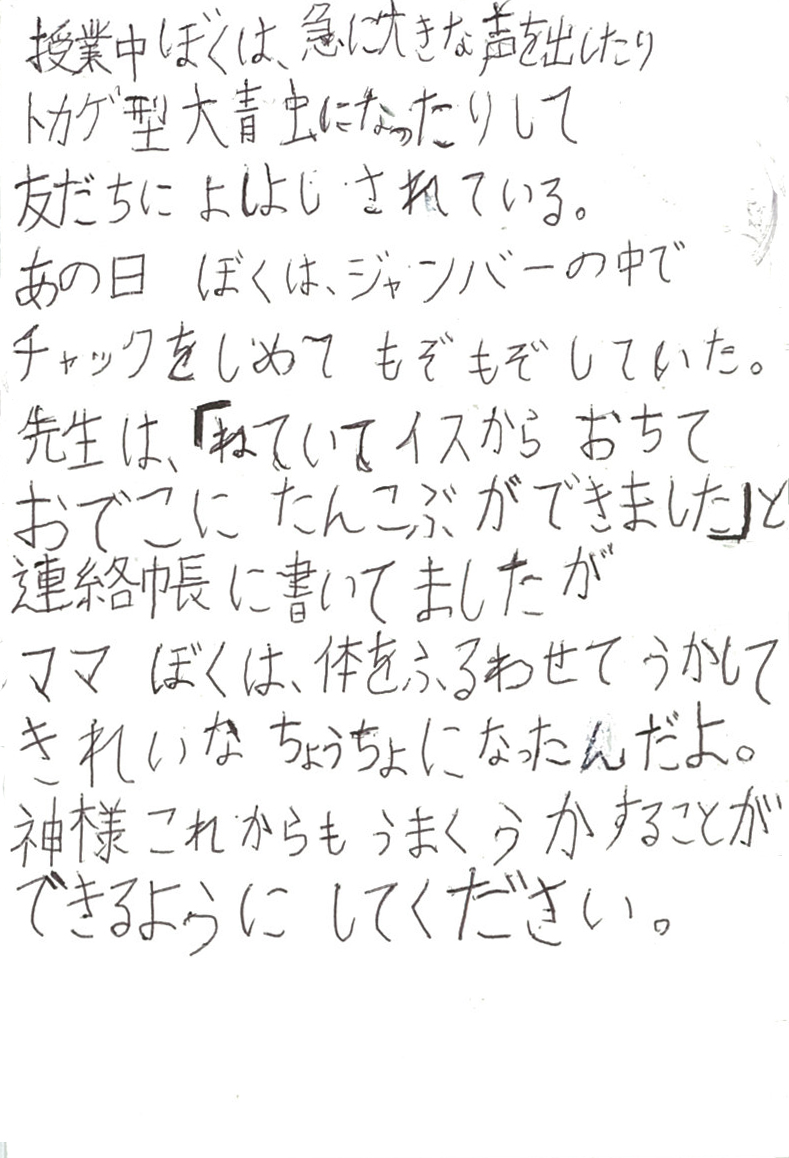 授業中ぼくは、急に大きな声を出したり
トカゲ型大青虫になったりして
友だちに よしよし されている。
あの日 ぼくは、ジャンバーの中で
チャックをしめて もぞもぞしていた。
先生は、「ねていてイスから おちて
おでこに たんこぶができました」と
連絡帳に書いてましたが
ママ ぼくは、体をふるわせて うかして
きれいな ちょうちょになったんだよ。
神様これからもうまくうかすることが
できるように してください。